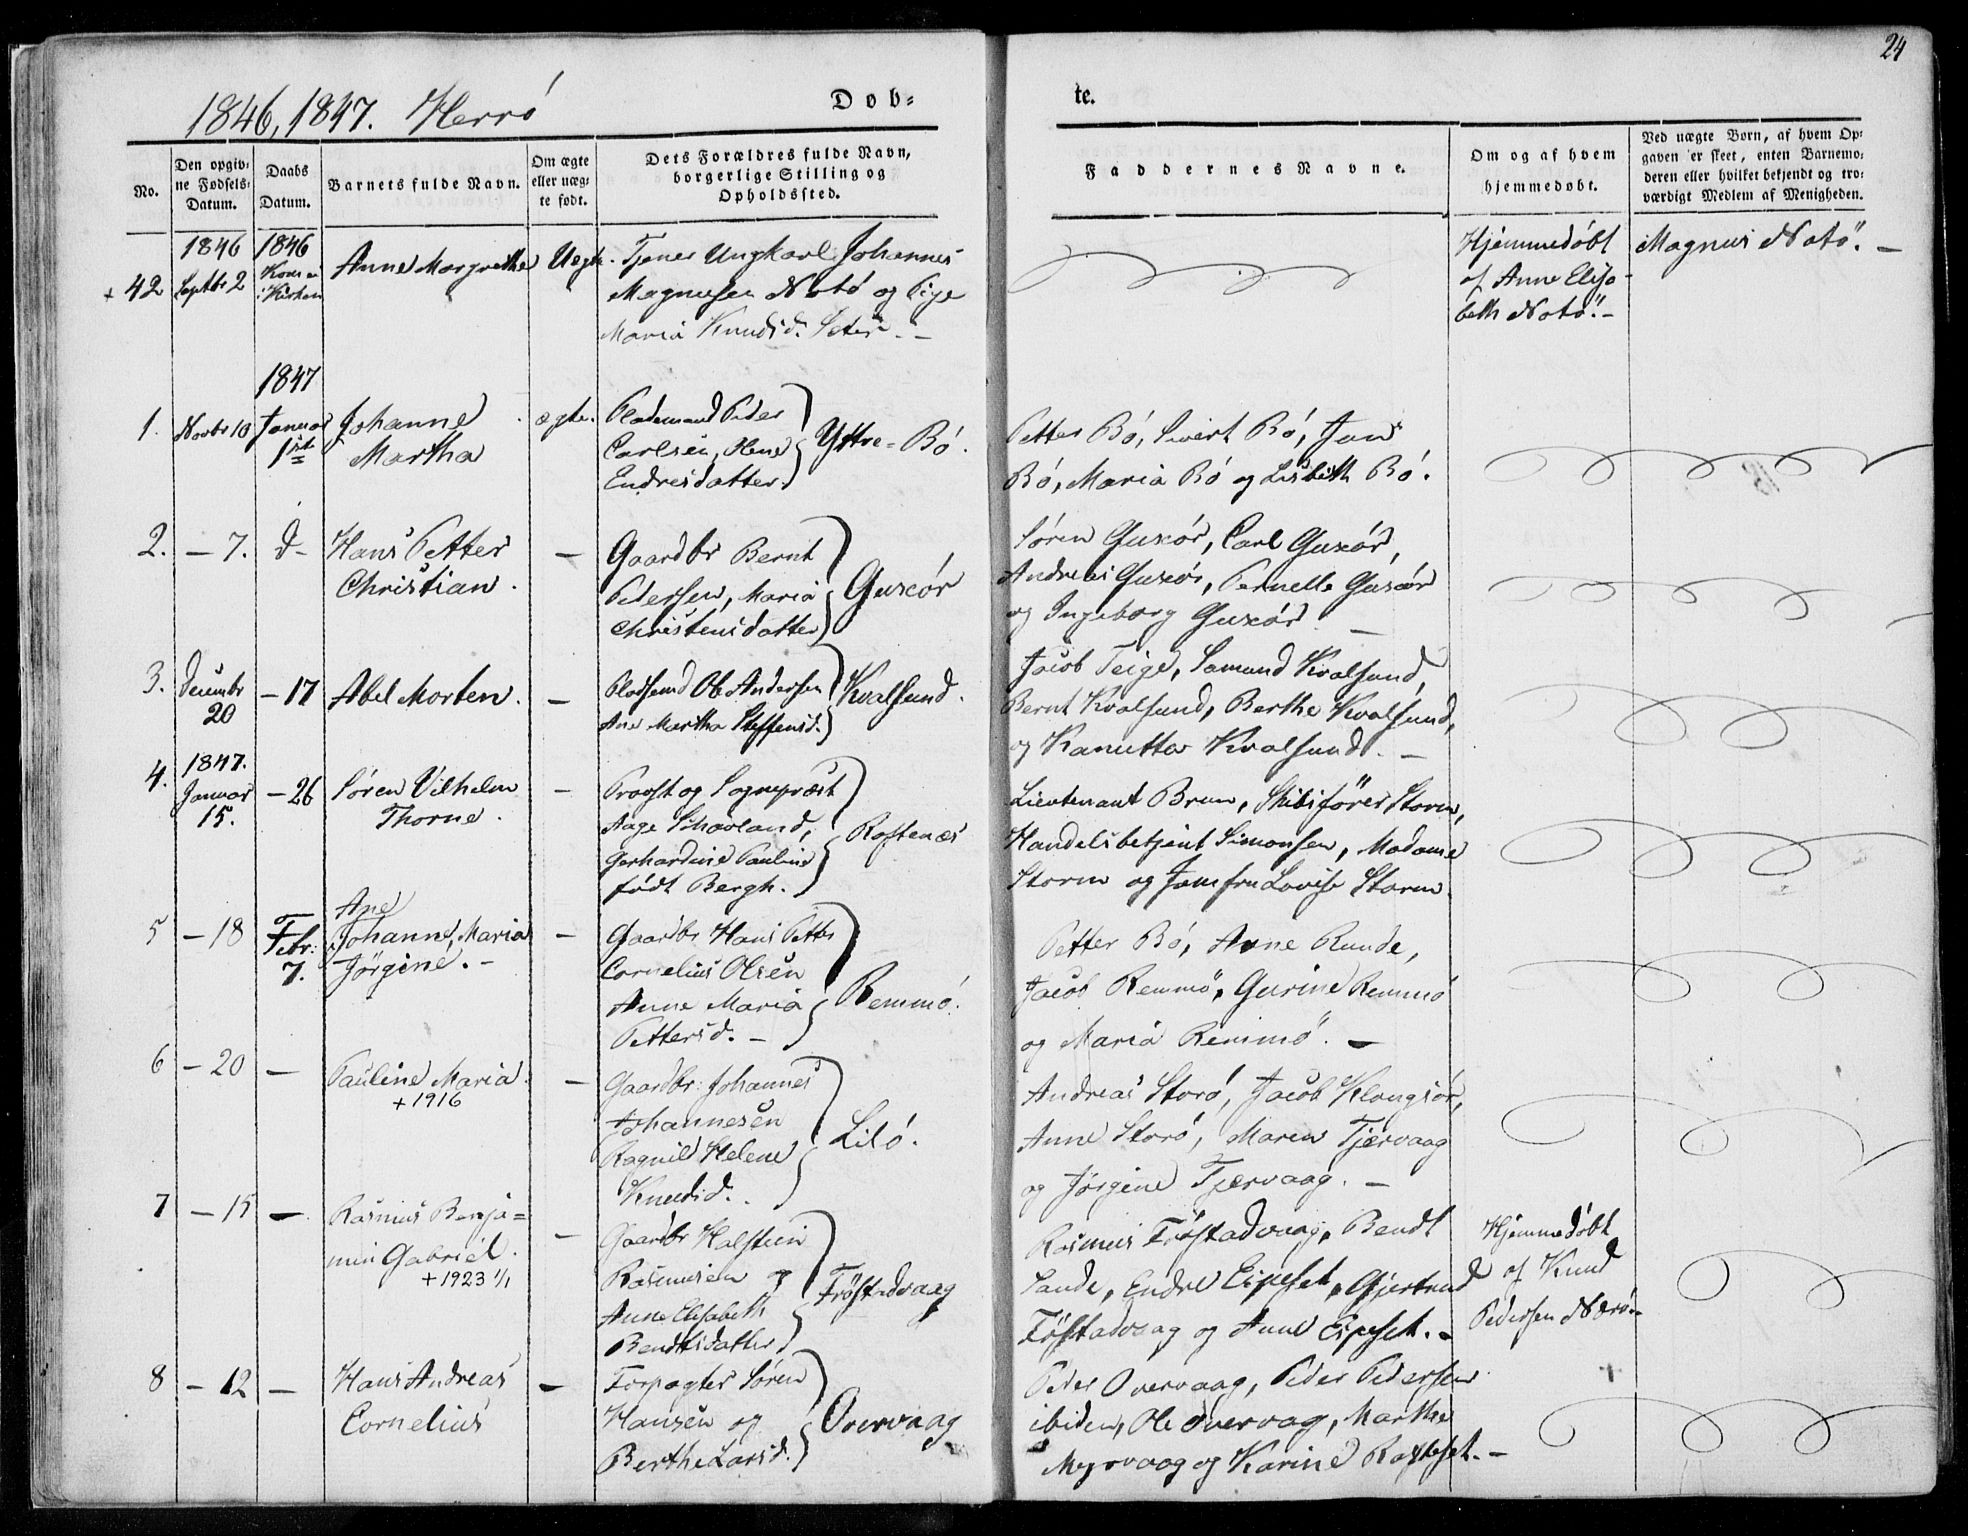 24
1846, 1847. Herrö
Døb-
te.
No.
Den opgiv-
ne Fødsels-
Datum.
Daabs
Datum.
Barnets fulde Navn.
Om ægte
eller uæg-
te født.
Dets Forældres fulde Navn,
borgerlige Stilling og
Opholdssted.
Faddernes Navne.
Om og af hvem
hjemmedøbt.
Ved uægte Børn, af hvem Op-
gaven er skeet, enten Barnemo-
deren eller hvilket bekjendt og tro-
værdigt Medlem af Menigheden.
+ 42
1846
Septbr 2
1846
Kom ei
i Kirken
Anne Margrethe
Uægte.
Tjener Ungkarl Johannes
Magnusen Notö og Pige
Maria Knudsd. Seter. -
Hjemmedöbt
af Anne Elisa-
beth Notö. -
Magnus Notö. -
1847
1.
Novbr 10
Januar
1ste
Johanne
Martha
ægte.
Pladsmand Peder
Carlsen, Olene
Endresdatter.
Yttre-Bö.
Petter Bö, Sivert Bö, Jan
Bö, Maria Bö og Lisbeth Bö.
2.
- 7.
d-
Hans Petter
Christian.
-
Gaardbr Bernt
Pedersen, Maria
Christensdatter
Gusxör
Sören Gusxör, Carl Gusxör,
Andreas Gusxör, Pernelle Gusxör
og Ingeborg Gusxör. -
3.
Decembr
20
- 17
Abel Morten.
-
Pladsmd Ole Andersen
Ane Martha Steffensd.
Kvalsund.
Jacob Teige, Samund Kvalsund,
Bernt Kvalsund, Berthe Kvalsund,
og Kanutta Kvalsund. -
4.
1847.
Januar
15.
- 26
Sören Vilhelm
Thorne.
-
Provst og Sognepræst
Aage Schavland,
Gerhardine Pauline
födt Bergh.
Röstenæs
Lieutenant Brun, Skibsförer Storm,
Handelsbetjent Simonsen, Madame
Storm og Jomfru Lovise Storm.
5
- 18
Febr:
7.
Ane
Johanne, Maria
Jörgine. -
-
Gaardbr Hans Petter
Cornelius Olsen
Anne Maria
Pettersd. -
Remmö.
Petter Bö, Arne Runde,
Jacob Remmö, Gurine Remmö
og Maria Remmö. -
6
- 20
-
Pauline Maria.
+ 1916
-
Gaardbr: Johannes
Johannesen
Ragnild Helene
Knudsd.
Lilö.
Andreas Storö, Jacob Klongsör,
Anne Storö, Maren Tjervaag
og Jörgine Tjervaag. -
7
- 15
-
Rasmus Benja-
min Gabriel.
+ 1923 1/1
-
Gaardbr Halstein
Rasmusen og
Anne Elisabeth
Bendtsdatter
Fröstadvaag
Rasmus Fröstadvaag, Bendt
Sande, Endre Eipeset, Gjertrud
Föstadvaag og Anne Eipeset. -
Hjemmedöbt
af Knud
Pedersen Nærö. -
8
- 12
-
Hans Andreas
Cornelius
-
Forpagter Sören
Hansen og
Berthe Larsd.
Overvaag
Peder Overvaag, Peder Pedersen
ibidem, Ole Overvaag, Marthe
Myrvaag og Karine Rafteset. -